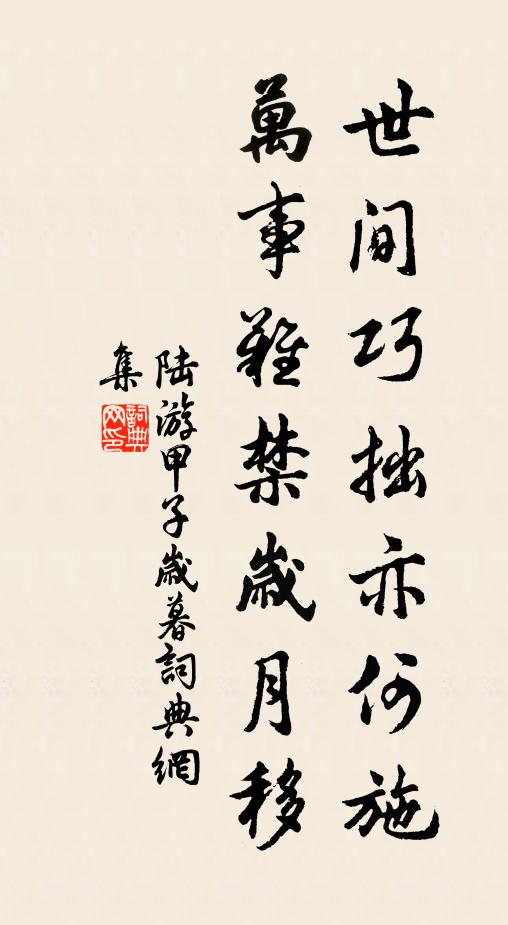 世間巧拙亦何施
萬事難禁歲月移
陸游甲子歲暮詞典網
集
詞典
网印